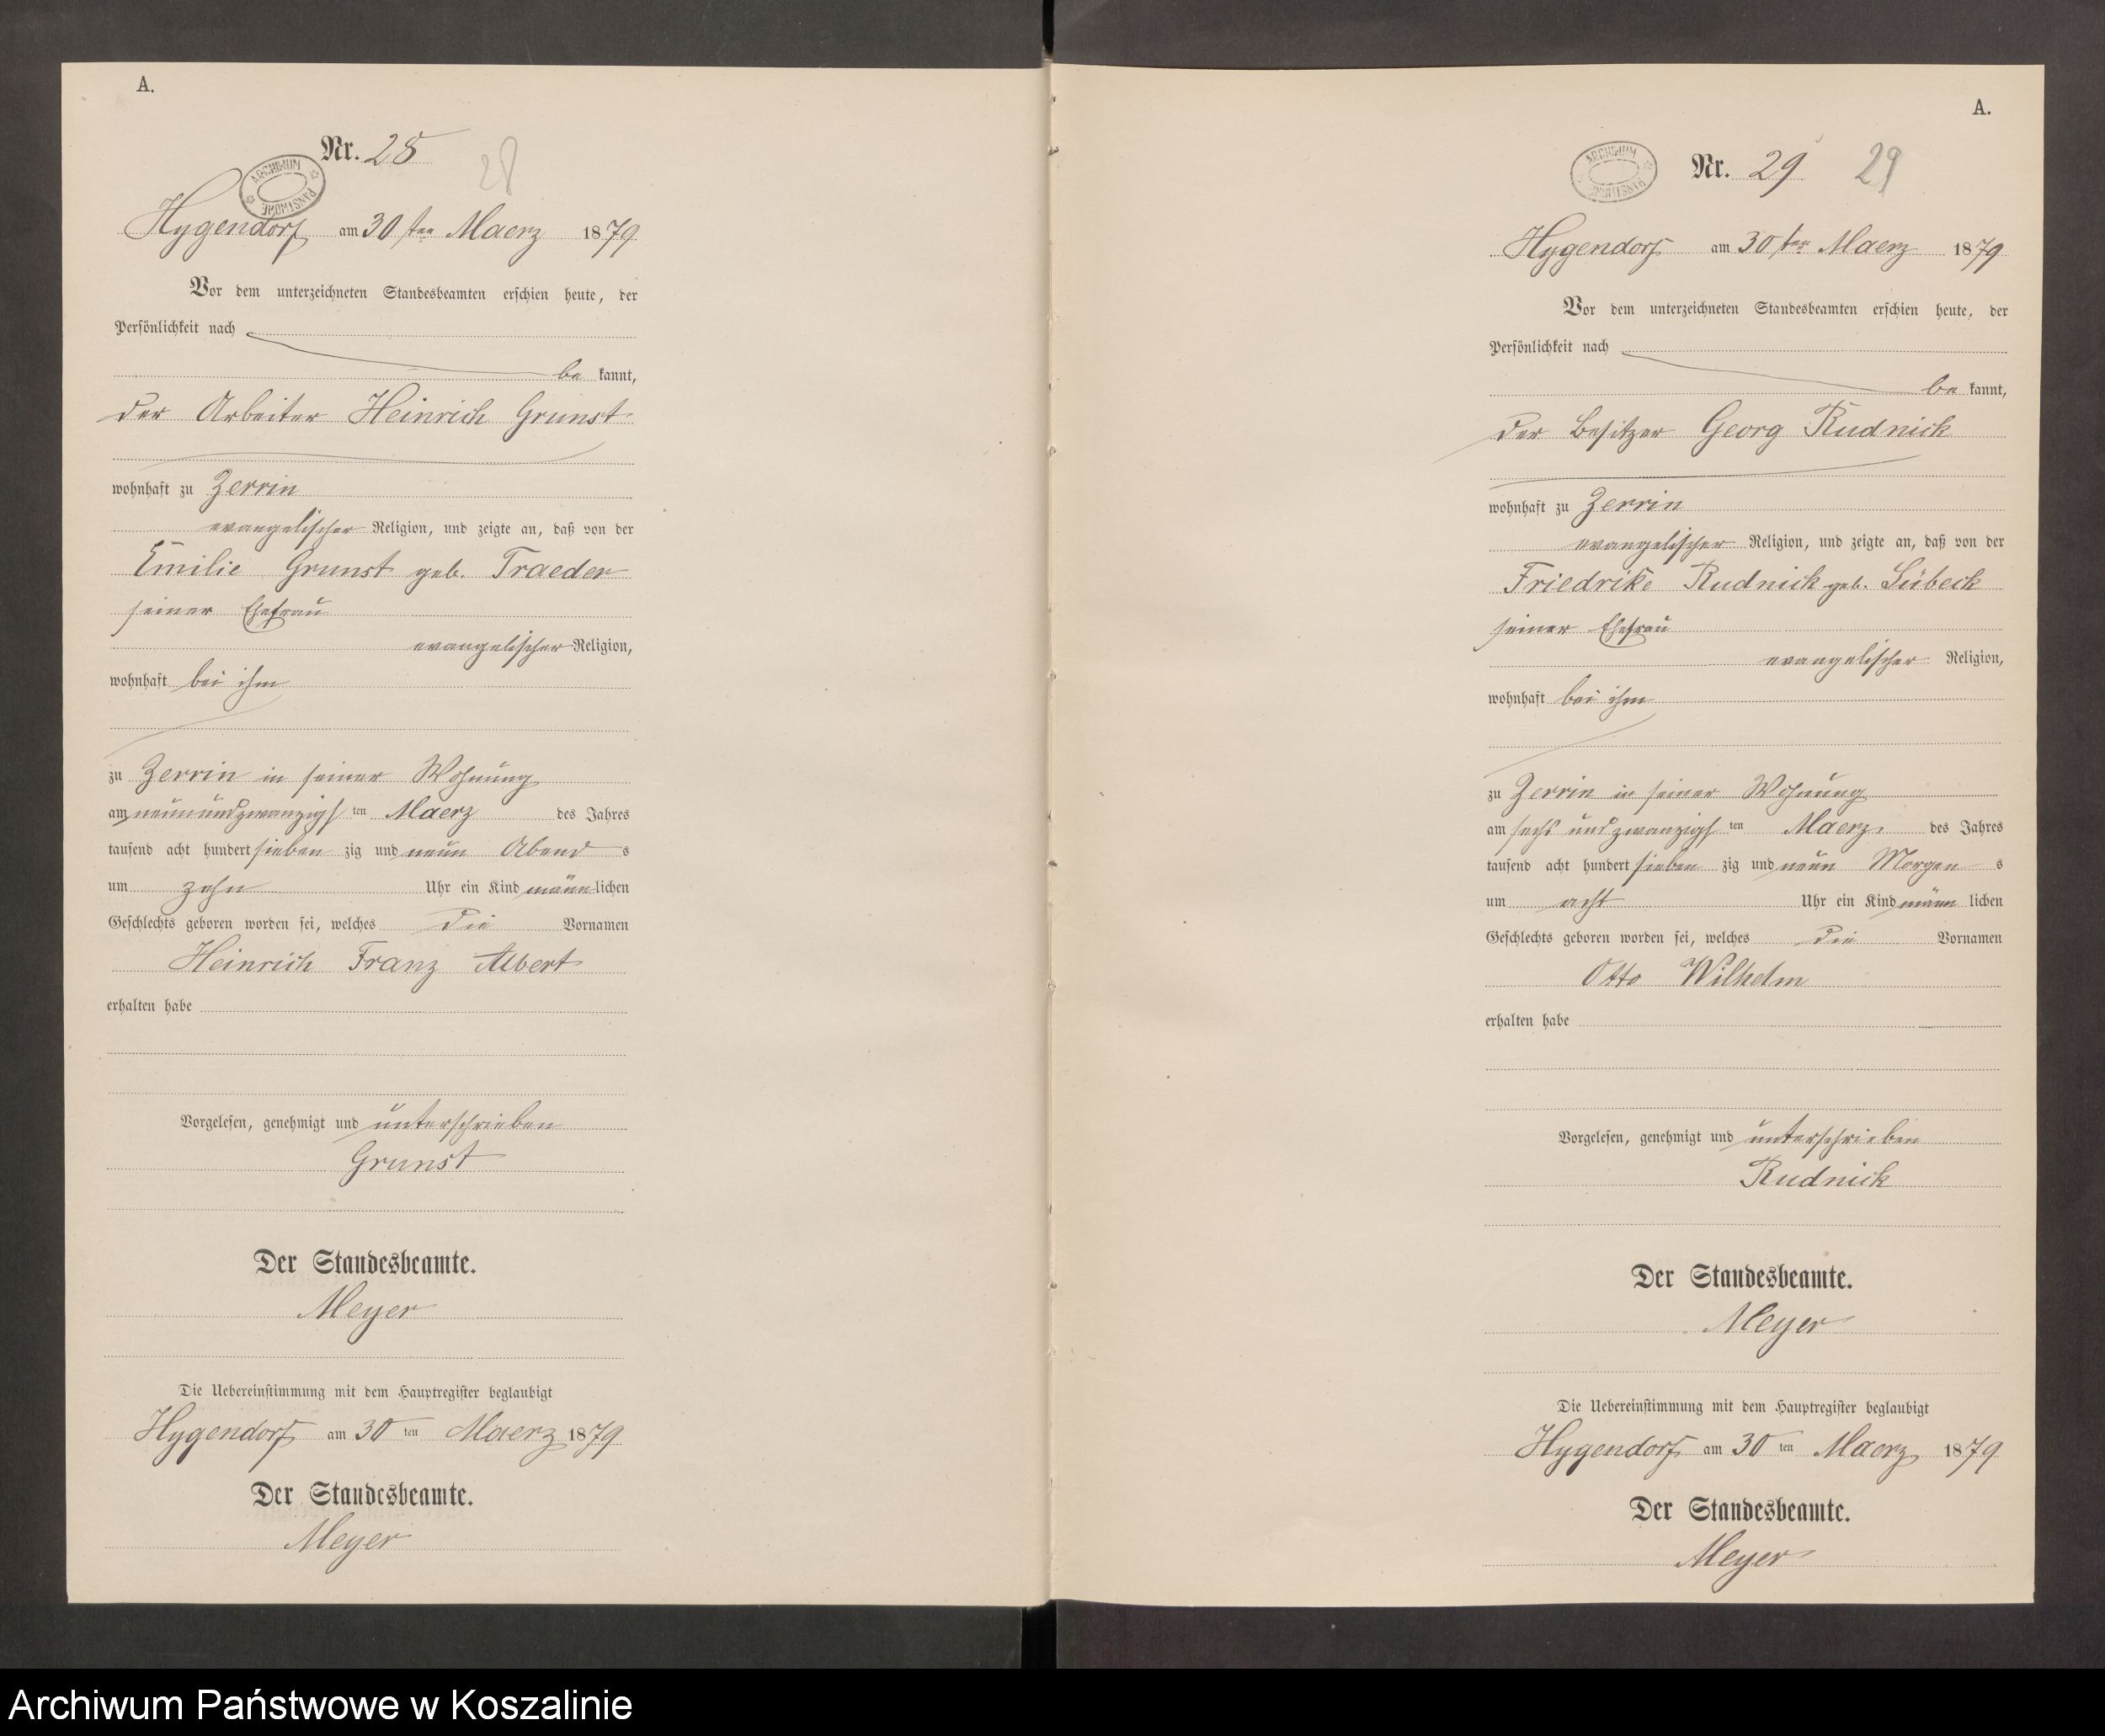 A.
Nr. 28
28
ARCHIWUM PAŃSTWOWE
Hygendorf am 30 ten Maerz 1879
Vor dem unterzeichneten Standesbeamten erschien heute, der
Persönlichkeit nach
be kannt,
der Arbeiter Heinrich Grunst
wohnhaft zu Zerrin
evangelischer Religion, und zeigte an, daß von der
Emilie Grunst geb. Traeder
seiner Ehefrau
evangelischer Religion,
wohnhaft bei ihm
zu Zerrin in seiner Wohnung
am neunundzwanzigs ten Maerz des Jahres
tausend acht hundert sieben zig und neun Abend s
um zehn Uhr ein Kind männ lichen
Geschlechts geboren worden sei, welches die Vornamen
Heinrich Franz Albert
erhalten habe
Vorgelesen, genehmigt und unterschrieben
Grunst
Der Standesbeamte.
Meyer
Die Uebereinstimmung mit dem Hauptregister beglaubigt
Hygendorf am 30 ten Maerz 1879
Der Standesbeamte.
Meyer
A.
ARCHIWUM PAŃSTWOWE
Nr. 29
29
Hygendorf am 30 ten Maerz 1879
Vor dem unterzeichneten Standesbeamten erschien heute, der
Persönlichkeit nach
be kannt,
der Besitzer Georg Rudnick
wohnhaft zu Zerrin
evangelischer Religion, und zeigte an, daß von der
Friedrike Rudnick geb. Lübeck
seiner Ehefrau
evangelischer Religion,
wohnhaft bei ihm
zu Zerrin in seiner Wohnung
am sechs und zwanzigs ten Maerz des Jahres
tausend acht hundert sieben zig und neun Morgen s
um acht Uhr ein Kind männ lichen
Geschlechts geboren worden sei, welches die Vornamen
Otto Wilhelm
erhalten habe
Vorgelesen, genehmigt und unterschrieben
Rudnick
Der Standesbeamte.
Meyer
Die Uebereinstimmung mit dem Hauptregister beglaubigt
Hygendorf am 30 ten Maerz 1879
Der Standesbeamte.
Meyer
Archiwum Państwowe w Koszalinie